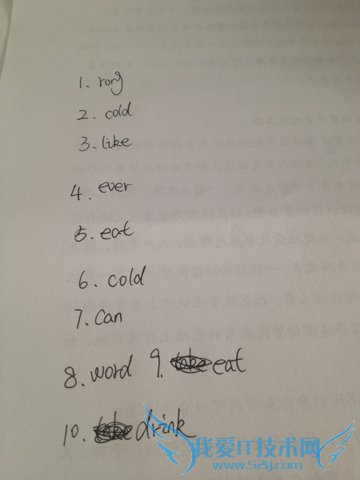 1. rong
2. cold
3. like
4. ever
5. eat
6. cold
7. can
8. word 9. eat
10. drink
我爱IT技术网
www.52ij.com